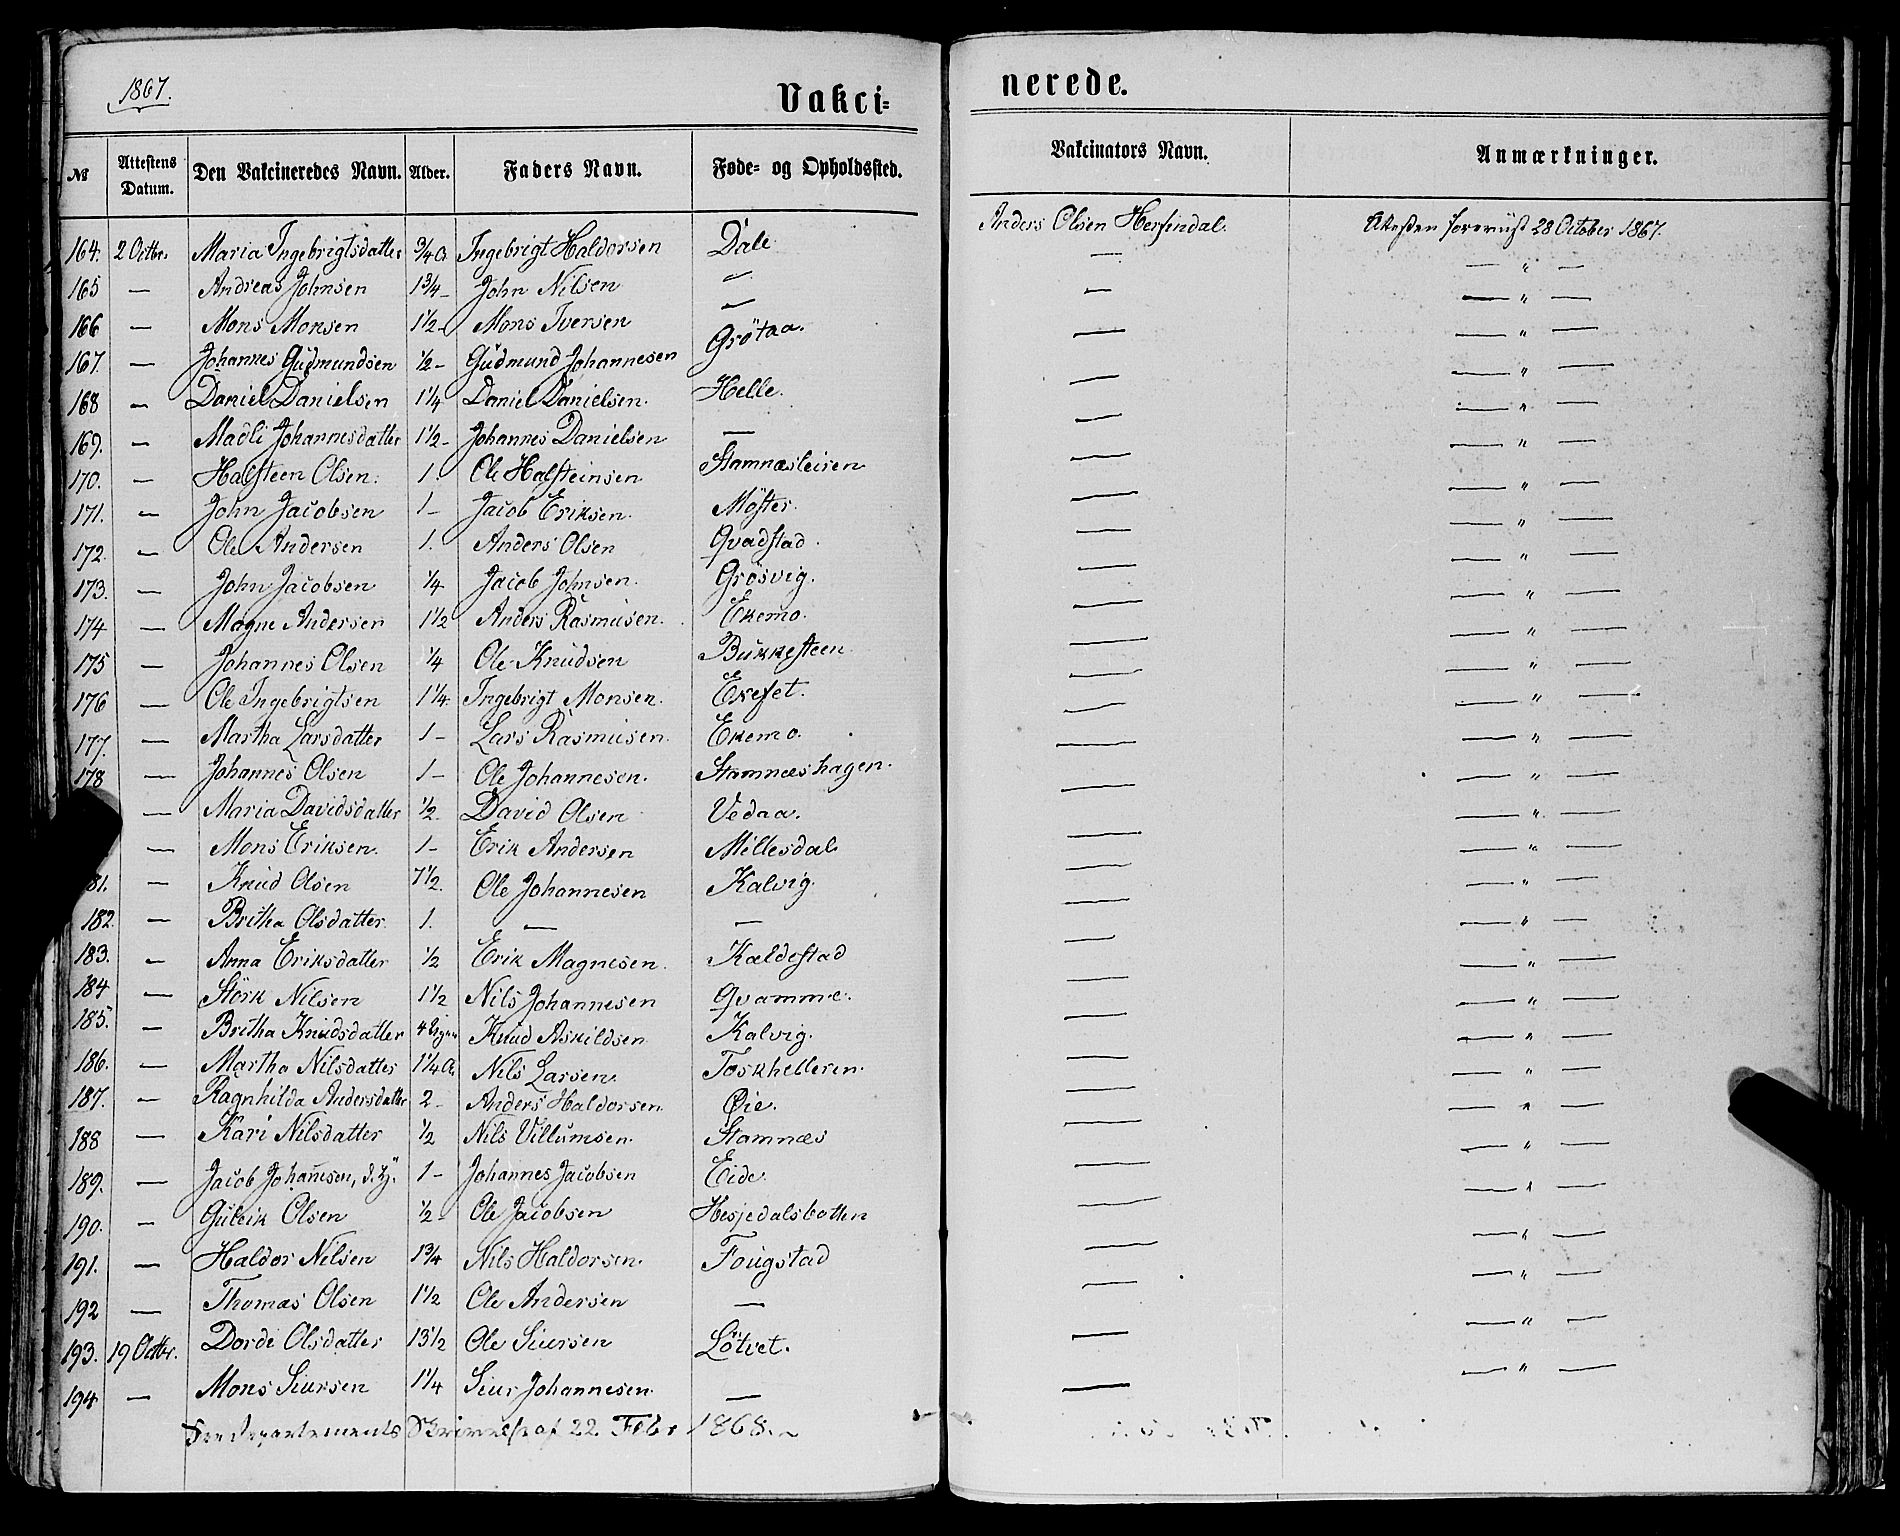 1867.
Vakcinerede.
№ Attestens Datum. Den Vakcineredes Navn. Alder. Faders Navn. Føde- og Opholdssted. Vakcinators Navn. Anmærkninger.
164. 2 Octbr. Maria Ingebrigtsdatter 3/4 A. Ingebrigt Haldorsen Dale Anders Olsen Hersendal. Attesten 28 October 1867.
165 — Andreas Johnsen 1 3/4 – John Nilsen — — — " —
166 — Mons Monsen 1 1/2 – Mons Iversen — — — " —
167. — Johannes Gudmundsen 1/2 – Gudmund Johannesen Grötaa. — — " —
168 — Daniel Danielsen 1 1/4 Daniel Danielsen. Helle. — — " —
169. — Madli Johannesdatter 1 1/2 – Johannes Danielsen — — — " —
170. — Halsteen Olsen. 1. Ole Halsteinsen Stamnesleisen — — " —
171. — John Jacobsen 1 – Jacob Eriksen. Möster. — — " —
172. — Ole Andersen 1. Anders Olsen Qvadstad. — — " —
173. — John Jacobsen 1/4 Jacob Johnsen. Grösvig. — — " —
174 — Magne Andersen 1 1/2 Anders Rasmusen. Ekemo. — — " —
175 — Johannes Olsen 1/4 Ole Knudsen Bukkesteen — — " —
176 — Ole Ingebrigtsen 1 1/4 Ingebrigt Monsen. Ekeset. — — " —
177. — Martha Larsdatter 1 – Lars Rasmusen. Ekemo. — — " —
178 — Johannes Olsen 1 – Ole Johannesen. Stamneshagen. — — " —
— Maria Davidsdatter 1/2. David Olsen Vedaa. — — " —
— Mons Eriksen. 1 – Erik Andersen Millesdal — — " —
81. — Knud Olsen 7 1/2. Ole Johannesen Kalvig. — — " —
182. — Britha Olsdatter 1. — — — — " —
183. — Anna Eriksdatter 1/2 Erik Magnesen. Kaldestad — — " —
184 — Störk Nilsen 1 1/2 Nils Johannesen Qvamme. — — " —
185. — Britha Knudsdatter 4 Knud Askildsen Kalvig. — — " —
186. — Martha Nilsdatter 1 1/4 A. Nils Larsen. Toskhelleren. — — " —
187. — Ragnhilda Andersdatter 2 – Anders Haldorsen. Øie. — — " —
188 — Kari Nilsdatter 1/2 Nils Villumsen. Stamnes — — " —
189. — Jacob Johannesen, d. y. 1 – Johannes Jacobsen Eide. — — " —
190. — Guleik Olsen 1/2 – Ole Jacobsen Hesjedalsbotten — — " —
191. — Haldor Nilsen 1 3/4 Nils Haldorsen. Fougstad — — " —
192 — Thomas Olsen 1 1/2 Ole Andersen — — — " —
193. 19 Octbr. Dorde Olsdatter 13 1/2 Ole Siursen Lötvet. — — " —
194 — Mons Siursen 1 1/4 Siur Johannesen. — — — " —
af 22. Febr 1868.